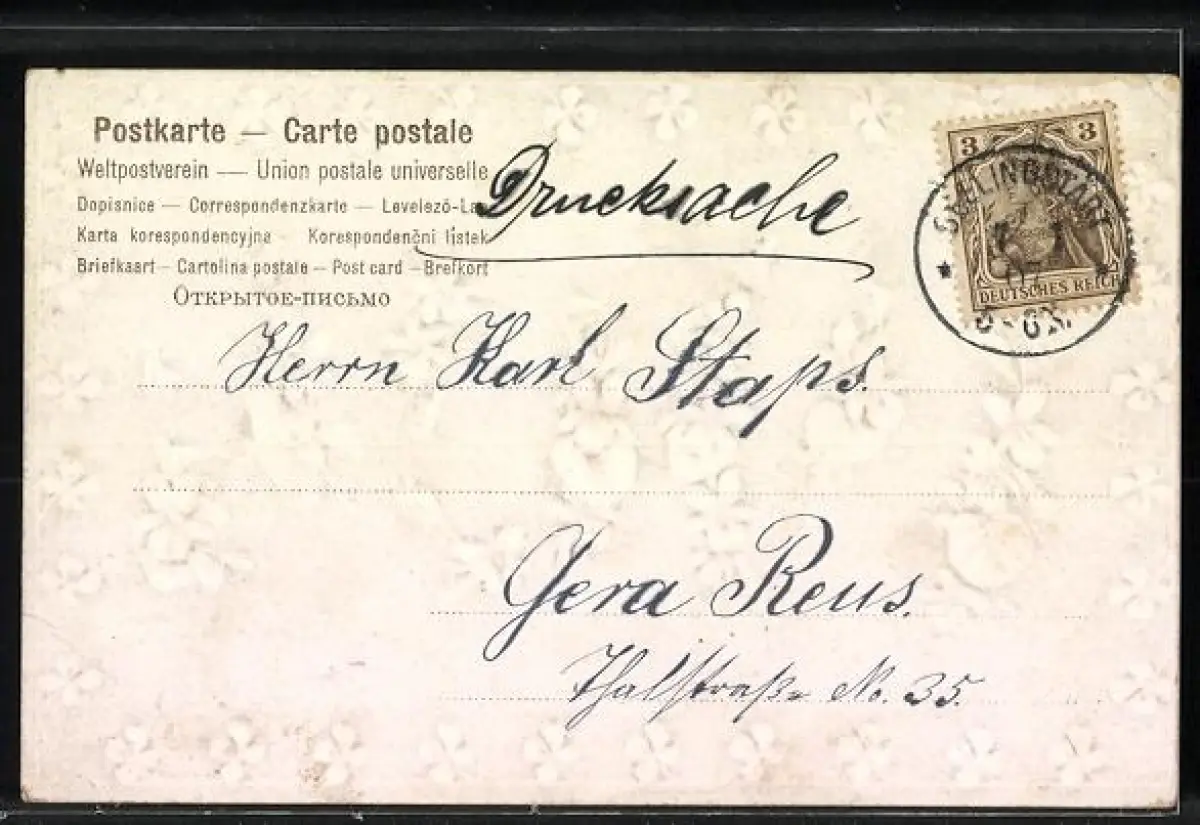 Postkarte — Carte postale
Weltpostverein — Union postale universelle
Dopisnice — Correspondenzkarte — Levelező-La
Karta korespondencyjna Korespondenční lístek
Briefkaart — Cartolina postale — Post card — Brefkort
Открытое-письмо
Drucksache
3 3
DEUTSCHES REICH
Herrn Karl Staps.
Gera Reus.
Thalstraße No. 35.